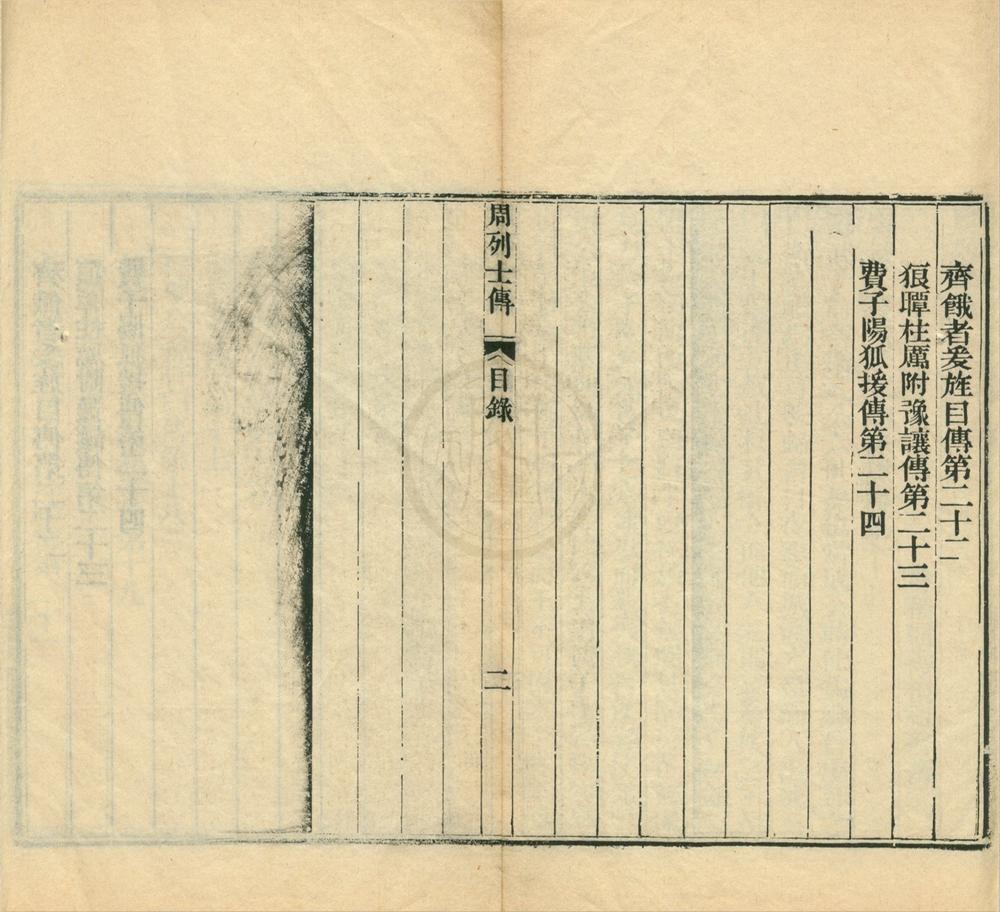 齊餓者爰旌目傳第二十二
狼瞫柱厲附豫讓傳第二十三
費子陽狐援傳第二十四
周列士傳
目錄
二